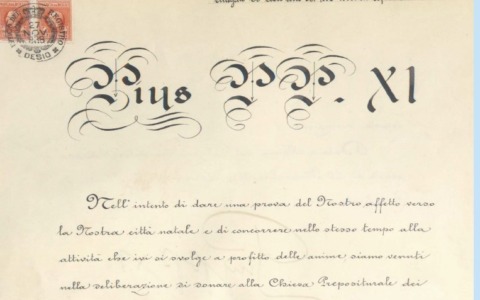 DESIO
Pius PP. XI
Nell' intento di dare una prova del Nostro affetto verso
la Nostra città natale e di concorrere nello stesso tempo alla
attività che ivi si svolge a profitto delle anime siamo venuti
nella deliberazione di donare alla Chiesa Prepositurale dei